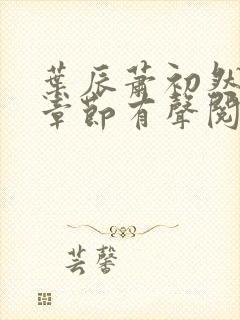 葉辰蕭初然
章節有聲閱
芸馨